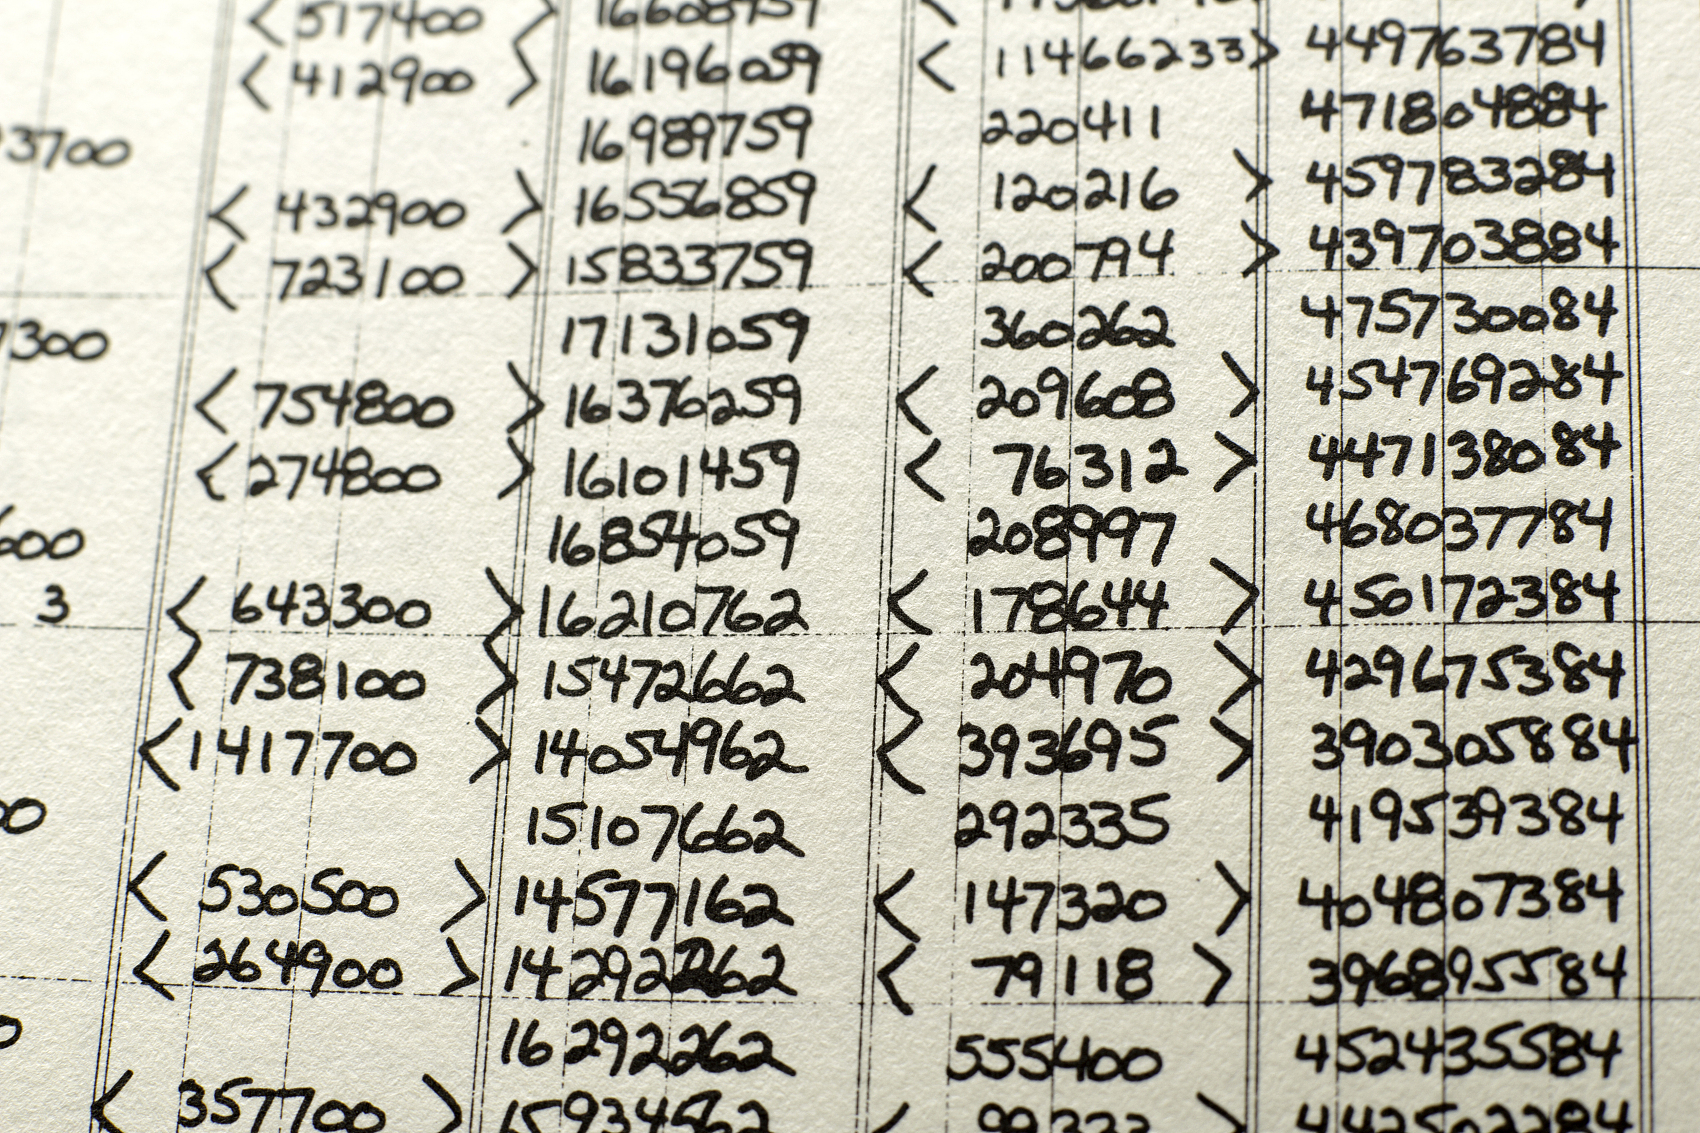 < 517400 > 16608959
< 412900 > 16196059 < 11466233 > 449763784
3700 16989759 220411 471804884
< 432900 > 16556859 < 120216 > 459783284
< 723100 > 15833759 < 200794 > 439703884
7300 17131059 360262 475730084
< 754800 > 16376259 < 209608 > 454769284
< 274800 > 16101459 < 76312 > 447138084
600 16854059 208997 468037784
3 < 643300 > 16210762 < 178644 > 450172384
< 738100 > 15472662 < 204970 > 429675384
< 1417700 > 14054962 < 393695 > 390305884
00 15107662 292335 419539384
< 530500 > 14577162 < 147320 > 404807384
< 264900 > 14292262 < 79118 > 396895584
0 16292262 555400 452435584
< 357700 > 15934562 < >